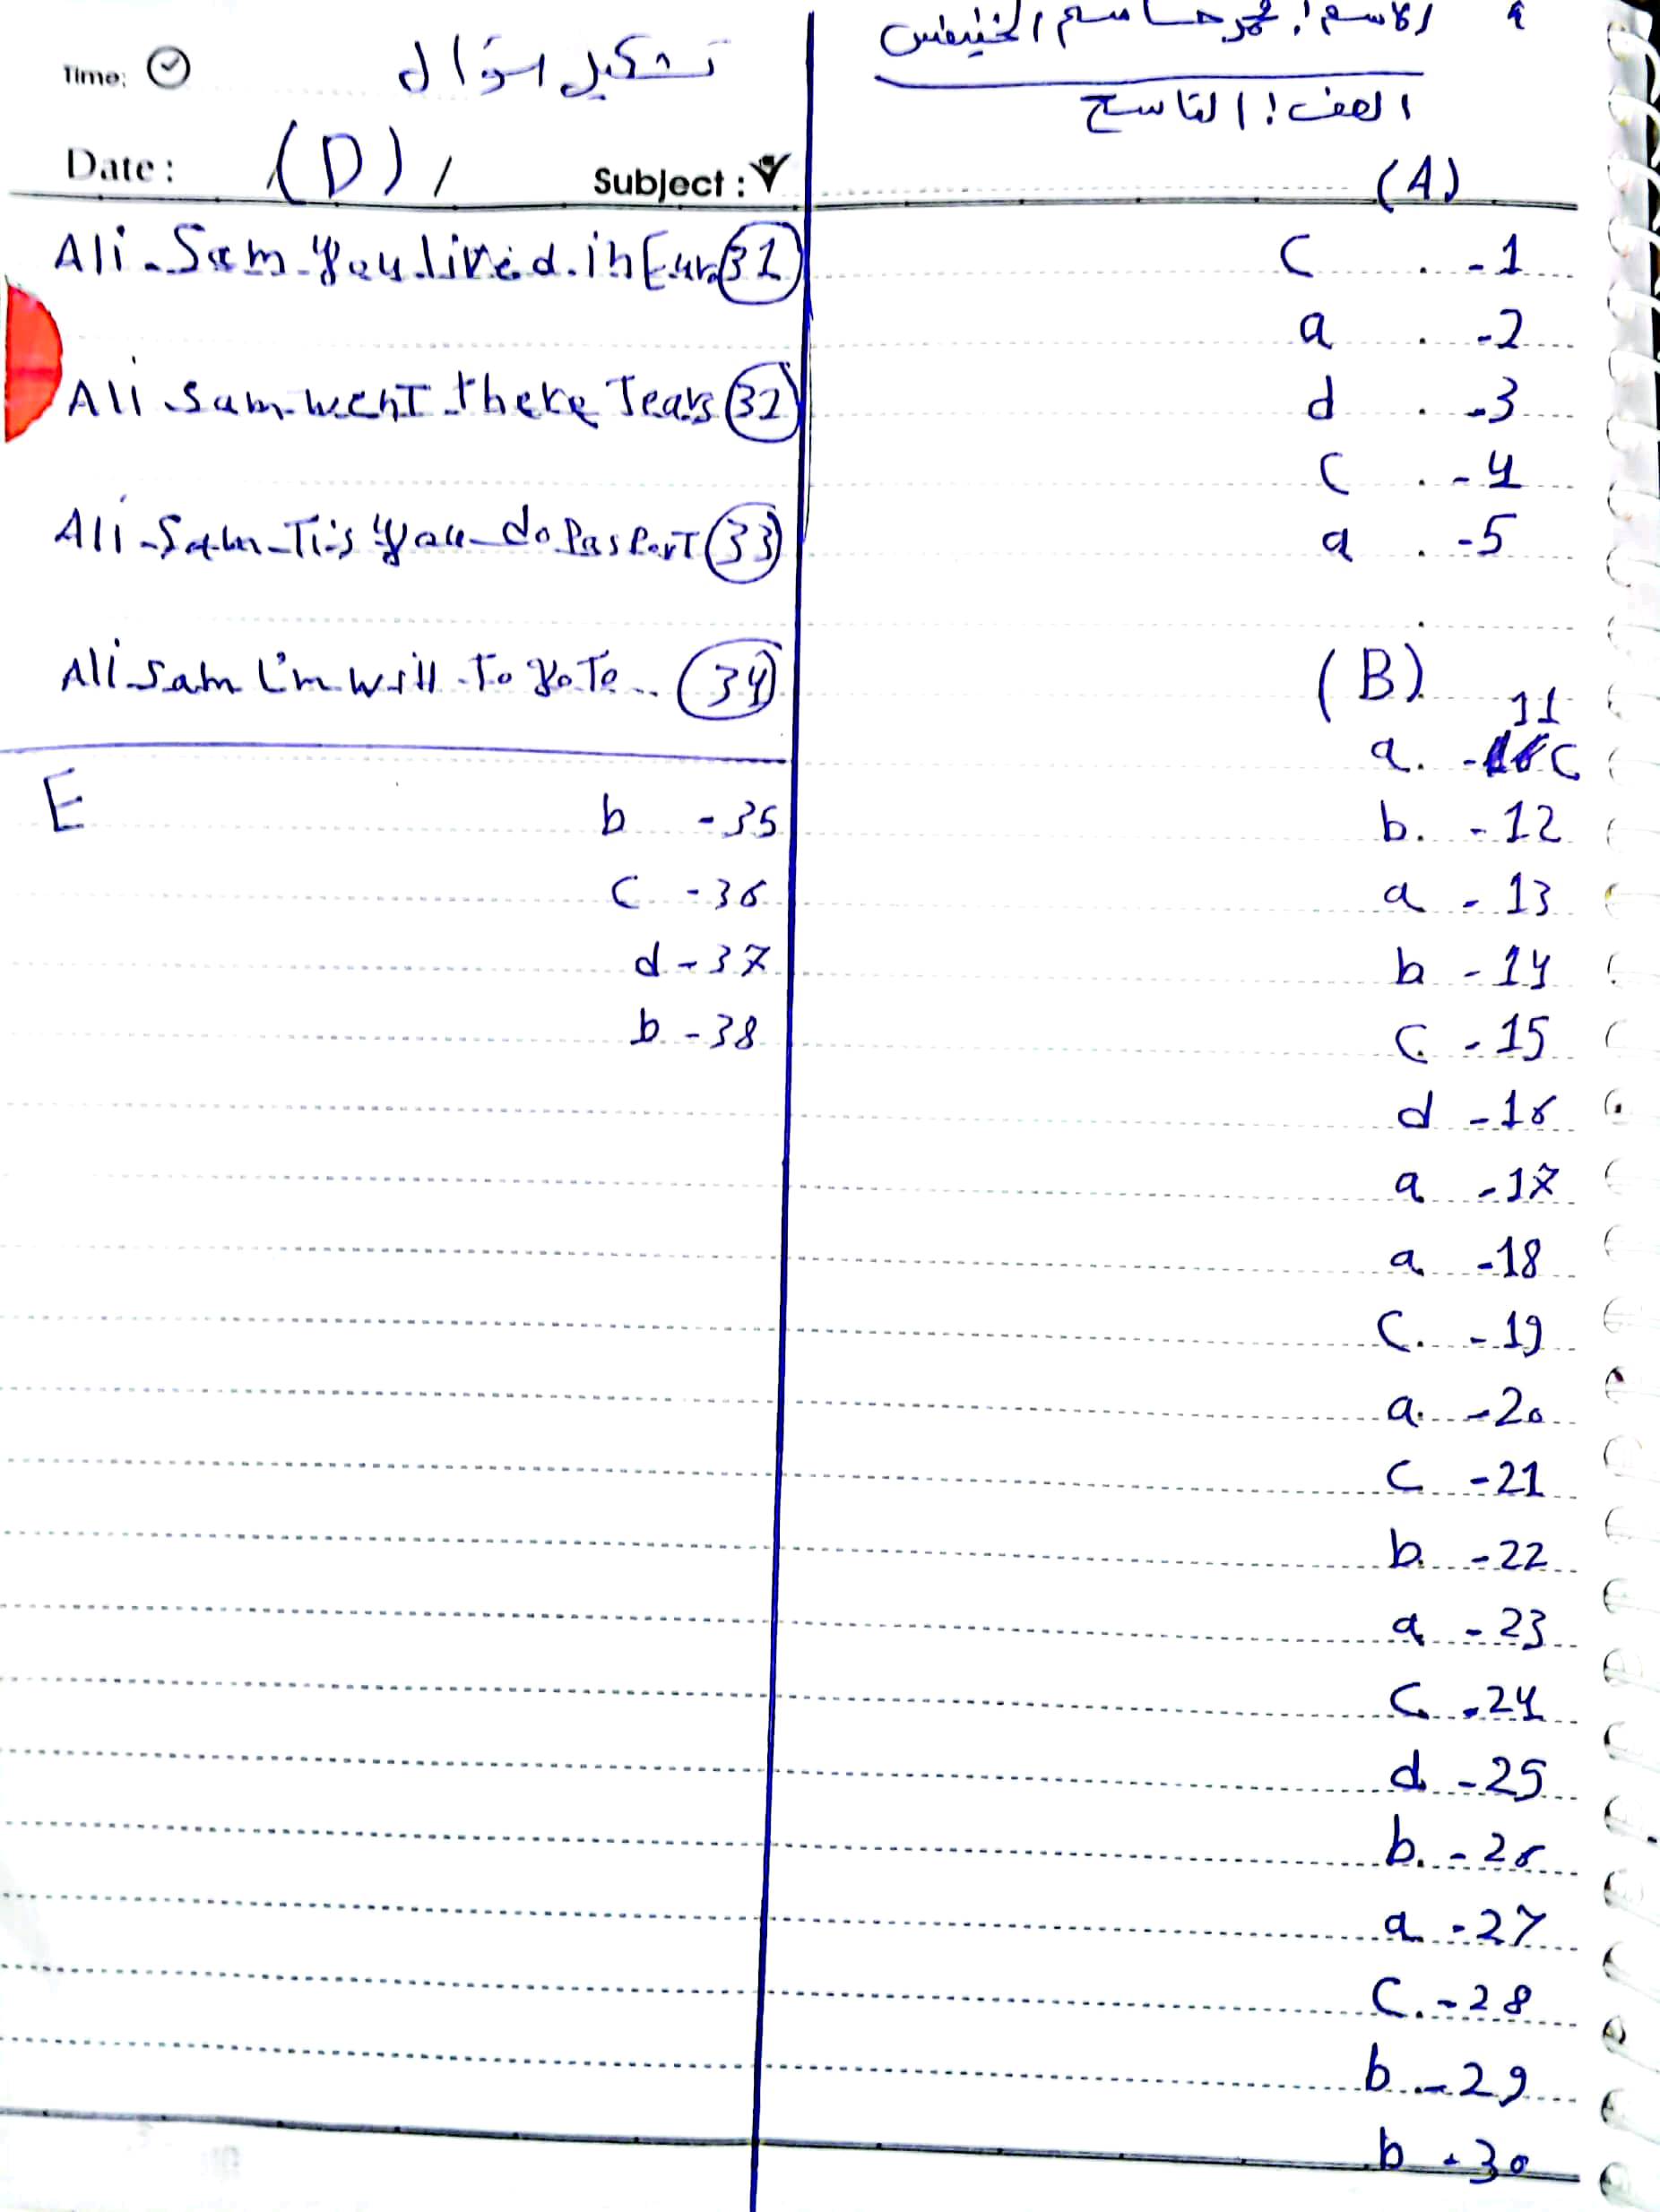 الاسم: محمد جاسم الخنيفس
الصف: التاسع
(A)
C - 1
a - 2
d - 3
C - 4
a - 5
(B)
11
a. - C
b. - 12
a - 13
b - 14
C - 15
d - 16
a - 17
a - 18
C. - 19
a. - 20
C - 21
b. - 22
a - 23
C - 24
d - 25
b. - 26
a - 27
C. - 28
b - 29
b - 30
Time:
تشكيل اسؤال
Date: (D) / Subject:
Ali - Sam - you lived in Eur 31
Ali sam went there Tears 32
Ali - Sam - Tis you - do PasPorT 33
Ali sam I'm will To VoTe .. 34
E
b - 35
C - 36
d - 37
b - 38